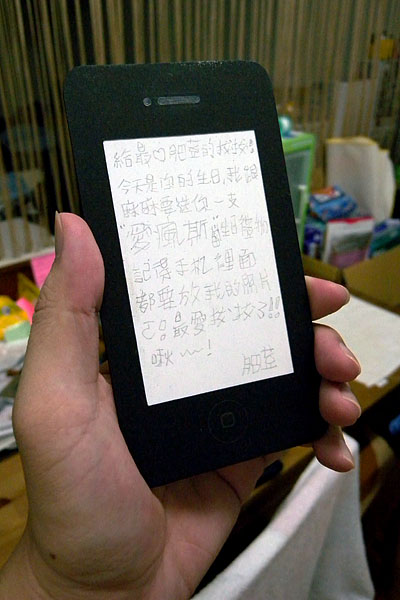 給最♡肥萱的拔拔!!
今天是你的生日,我跟
麻麻要送你一支
"愛瘋斯"生日禮物
記得手机裡面
都要放我的照片
ㄛ!!最愛拔拔了!!!
啾~~!
肥萱